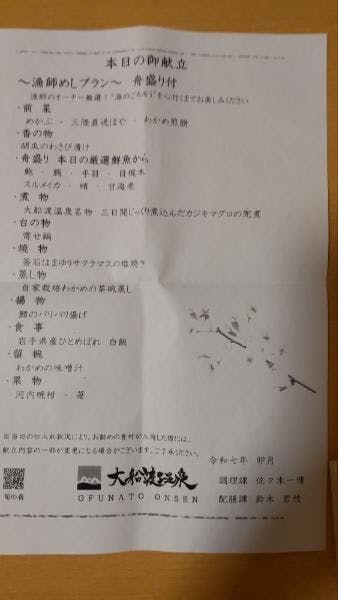 本日の御献立
～漁師めしプラン～　舟盛り付
漁師のオーナー厳選！"海のごちそう"を心行くまでお楽しみください
・前菜
めかぶ ・ 三陸直送ほや ・ わかめ煎餅
・香の物
胡瓜のわさび漬け
・舟盛り 本日の厳選鮮魚から
鮑 ・ 鮪 ・ 平目 ・ 目梶木
スルメイカ ・ 鰆 ・ 甘海老
・煮物
大船渡温泉名物 三日間じっくり煮込んだカジキマグロの兜煮
・台の物
寄せ鍋
・焼物
釜石はまゆりサクラマスの塩焼き
・蒸し物
自家栽培わかめの茶碗蒸し
・揚物
鱈のパリパリ揚げ
・食事
岩手県産ひとめぼれ 白飯
・留椀
わかめの味噌汁
・果物
河内晩柑 ・ 苺
※当日の仕入れ状況により、お勧めの食材が入荷した際には、
献立内容の一部が変更になる場合がございます。ご了承ください。
令和七年 卯月
旬の肴
大船渡温泉
OFUNATO ONSEN
調理課 佐々木一博
配膳課 鈴木 君枝